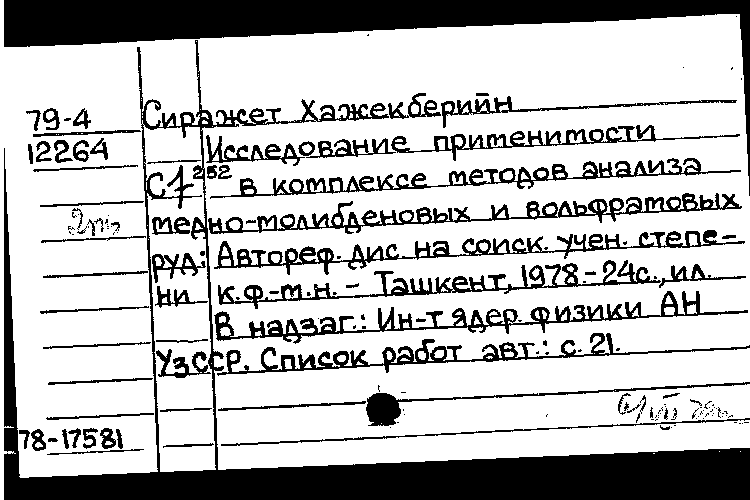 79-4
12264
Сиражет Хажекберийн
Исследование применимости
Cf²⁵² в комплексе методов анализа
медно-молибденовых и вольфрамовых
руд: Автореф. дис. на соиск. учен. степе-
ни к.ф-м.н. - Ташкент, 1978.-24с., ил.
В надзаг.: Ин-т ядер. физики АН
УзССР. Список работ авт.: с. 21.
78-17581